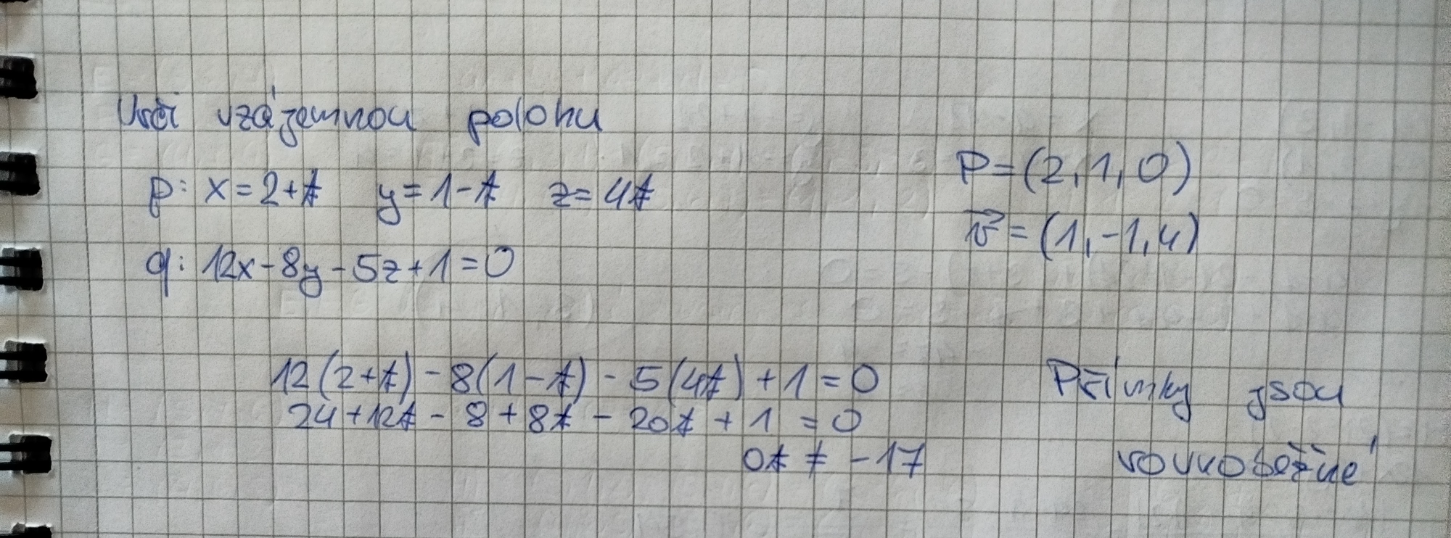 Urči vzájemnou polohu
p: x=2+t y=1-t z=4t
q: 12x-8y-5z+1=0
P=(2,1,0)
v⃗=(1,-1,4)
12(2+t)-8(1-t)-5(4t)+1=0
24+12t-8+8t-20t+1=0
0t≠-17
Přímky jsou
rovnoběžné